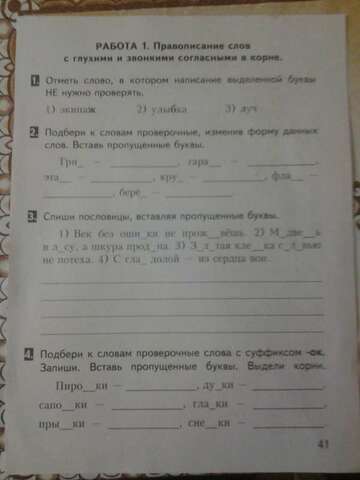 РАБОТА 1. Правописание слов
с глухими и звонкими согласными в корне.
1. Отметь слово, в котором написание выделенной буквы
НЕ нужно проверять.
1) экипаж 2) улыбка 3) луч
2. Подбери к словам проверочные, изменив форму данных
слов. Вставь пропущенные буквы.
Гри_ – __________, гара__ – __________,
эта__ – __________, кру_ – __________, фла__ –
__________, берё_ – __________.
3. Спиши пословицы, вставляя пропущенные буквы.
1) Век без оши_ки не прож__вёшь. 2) М_две__ь
в л_су, а шкура прод_на. 3) З_л_тая кле__ка с_л_вью
не потеха. 4) С гла_ долой – из сердца вон.
4. Подбери к словам проверочные слова с суффиксом -ок.
Запиши. Вставь пропущенные буквы. Выдели корни.
Пиро__ки – __________, ду_ки – __________,
сапо__ки – __________, гла_ки – __________,
пры__ки – __________, сне__ки – __________.
41